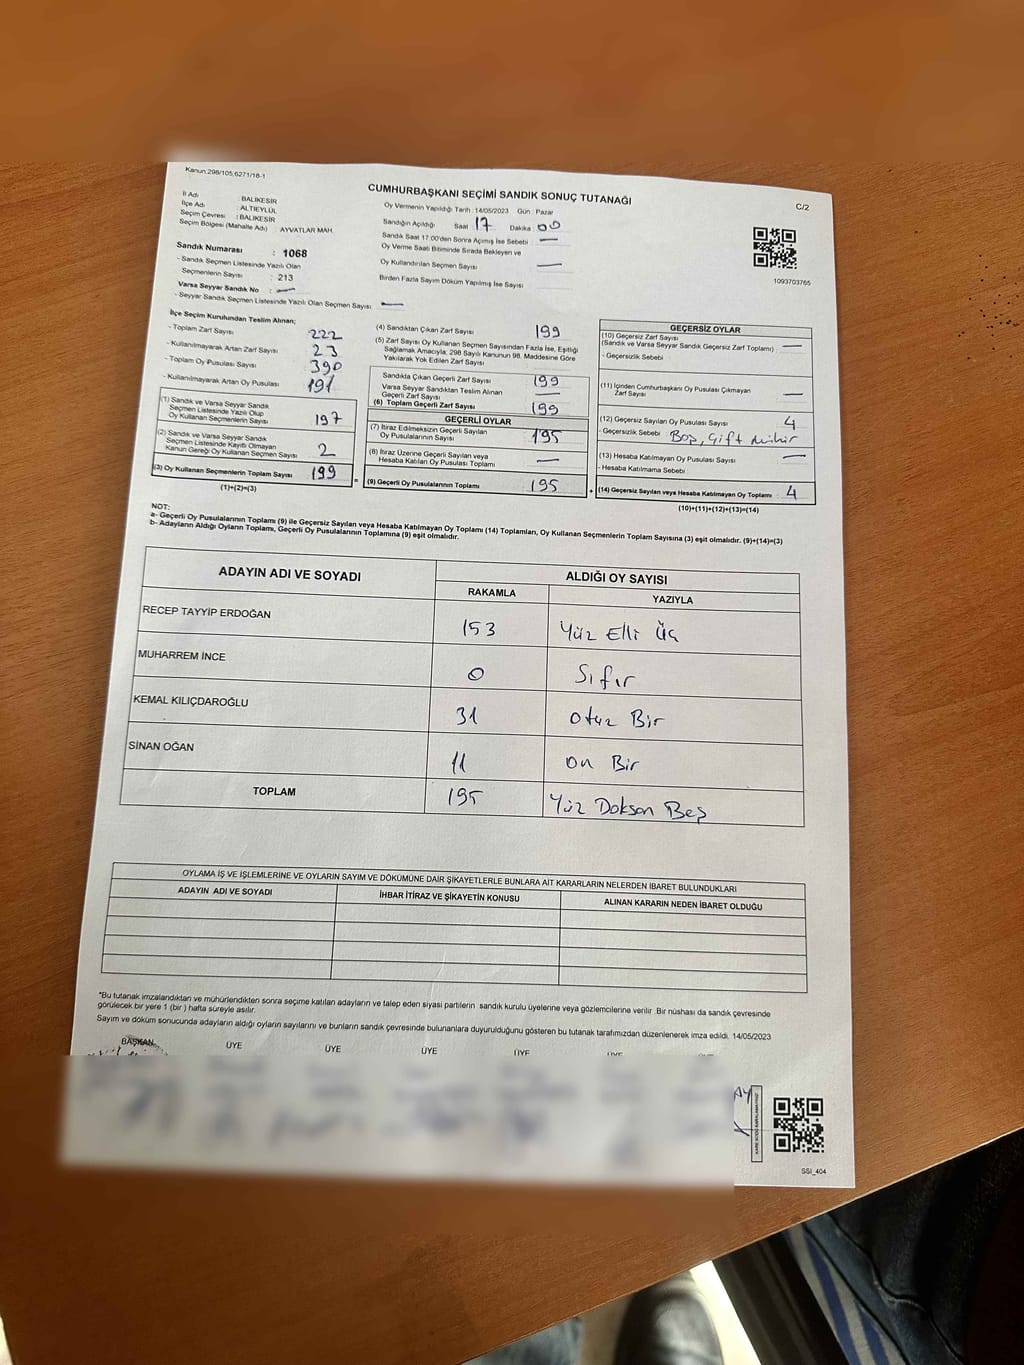 Kanun:298/105,6271/18-1
CUMHURBAŞKANI SEÇİMİ SANDIK SONUÇ TUTANAĞI
C/2
İl Adı : BALIKESİR
İlçe Adı : ALTIEYLÜL
Seçim Çevresi : BALIKESİR
Seçim Bölgesi (Mahalle Adı) : AYVATLAR MAH.
Sandık Numarası : 1068
- Sandık Seçmen Listesinde Yazılı Olan
Seçmenlerin Sayısı : 213
Varsa Seyyar Sandık No : —
- Seyyar Sandık Seçmen Listesinde Yazılı Olan Seçmen Sayısı : —
Oy Vermenin Yapıldığı Tarih : 14/05/2023 Gün : Pazar
Sandığın Açıldığı Saat : 17 Dakika : 00
Sandık Saat 17:00'den Sonra Açımış İse Sebebi : —
Oy Verme Saati Bitiminde Sırada Bekleyen ve
Oy Kullandırılan Seçmen Sayısı : —
Birden Fazla Sayım Döküm Yapılmış İse Sayısı :
1093703765
İlçe Seçim Kurulundan Teslim Alınan;
- Toplam Zarf Sayısı : 222
- Kullanılmayarak Artan Zarf Sayısı : 23
- Toplam Oy Pusulası Sayısı : 390
- Kullanılmayarak Artan Oy Pusulası : 191
(1) Sandık ve Varsa Seyyar Sandık
Seçmen Listesinde Yazılı Olup
Oy Kullanan Seçmenlerin Sayısı : 197
(2) Sandık ve Varsa Seyyar Sandık
Seçmen Listesinde Kayıtlı Olmayan
Kanun Gereği Oy Kullanan Seçmen Sayısı : 2
(3) Oy Kullanan Seçmenlerin Toplam Sayısı : 199
(1)+(2)=(3)
(4) Sandıktan Çıkan Zarf Sayısı : 199
(5) Zarf Sayısı Oy Kullanan Seçmen Sayısından Fazla İse, Eşitliği
Sağlamak Amacıyla; 298 Sayılı Kanunun 98. Maddesine Göre
Yakılarak Yok Edilen Zarf Sayısı :
Sandıkta Çıkan Geçerli Zarf Sayısı : 199
Varsa Seyyar Sandıktan Teslim Alınan
Geçerli Zarf Sayısı : —
(6) Toplam Geçerli Zarf Sayısı : 199
GEÇERLİ OYLAR
(7) İtiraz Edilmeksizin Geçerli Sayılan
Oy Pusulasının Sayısı : 195
(8) İtiraz Üzerine Geçerli Sayılan veya
Hesaba Katılan Oy Pusulası Toplamı : —
(9) Geçerli Oy Pusulalarının Toplamı : 195
GEÇERSİZ OYLAR
(10) Geçersiz Zarf Sayısı
(Sandık ve Varsa Seyyar Sandık Geçersiz Zarf Toplamı) : —
- Geçersizlik Sebebi :
(11) İçinden Cumhurbaşkanı Oy Pusulası Çıkmayan
Zarf Sayısı : —
(12) Geçersiz Sayılan Oy Pusulası Sayısı : 4
- Geçersizlik Sebebi : Boş, Çift mühür
(13) Hesaba Katılmayan Oy Pusulası Sayısı : —
- Hesaba Katılmama Sebebi :
(14) Geçersiz Sayılan veya Hesaba Katılmayan Oy Toplamı : 4
(10)+(11)+(12)+(13)=(14)
NOT:
a- Geçerli Oy Pusulalarının Toplamı (9) ile Geçersiz Sayılan veya Hesaba Katılmayan Oy Toplamı (14) Toplamları, Oy Kullanan Seçmenlerin Toplam Sayısına (3) eşit olmalıdır. (9)+(14)=(3)
b- Adayların Aldığı Oyların Toplamı, Geçerli Oy Pusulalarının Toplamına (9) eşit olmalıdır.
ADAYIN ADI VE SOYADI
ALDIĞI OY SAYISI
RAKAMLA YAZIYLA
RECEP TAYYİP ERDOĞAN 153 Yüz Elli Üç
MUHARREM İNCE 0 Sıfır
KEMAL KILIÇDAROĞLU 31 Otuz Bir
SİNAN OĞAN 11 On Bir
TOPLAM 195 Yüz Doksan Beş
OYLAMA İŞ VE İŞLEMLERİNE VE OYLARIN SAYIM VE DÖKÜMÜNE DAİR ŞİKAYETLERLE BUNLARA AİT KARARLARIN NELERDEN İBARET BULUNDUKLARI
ADAYIN ADI VE SOYADI İHBAR İTİRAZ VE ŞİKAYETİN KONUSU ALINAN KARARIN NEDEN İBARET OLDUĞU
*Bu tutanak imzalandıktan ve mühürlendikten sonra seçime katılan adayların ve talep eden siyasi partilerin sandık kurulu üyelerine veya gözlemcilerine verilir. Bir nüshası da sandık çevresinde
görülecek bir yere 1 (bir ) hafta süreyle asılır.
Sayım ve döküm sonucunda adayların aldığı oyların sayılarını ve bunların sandık çevresinde bulunanlara duyurulduğunu gösteren bu tutanak tarafımızdan düzenlenerek imza edildi. 14/05/2023
BAŞKAN ÜYE ÜYE ÜYE ÜYE ÜYE
SSI_404